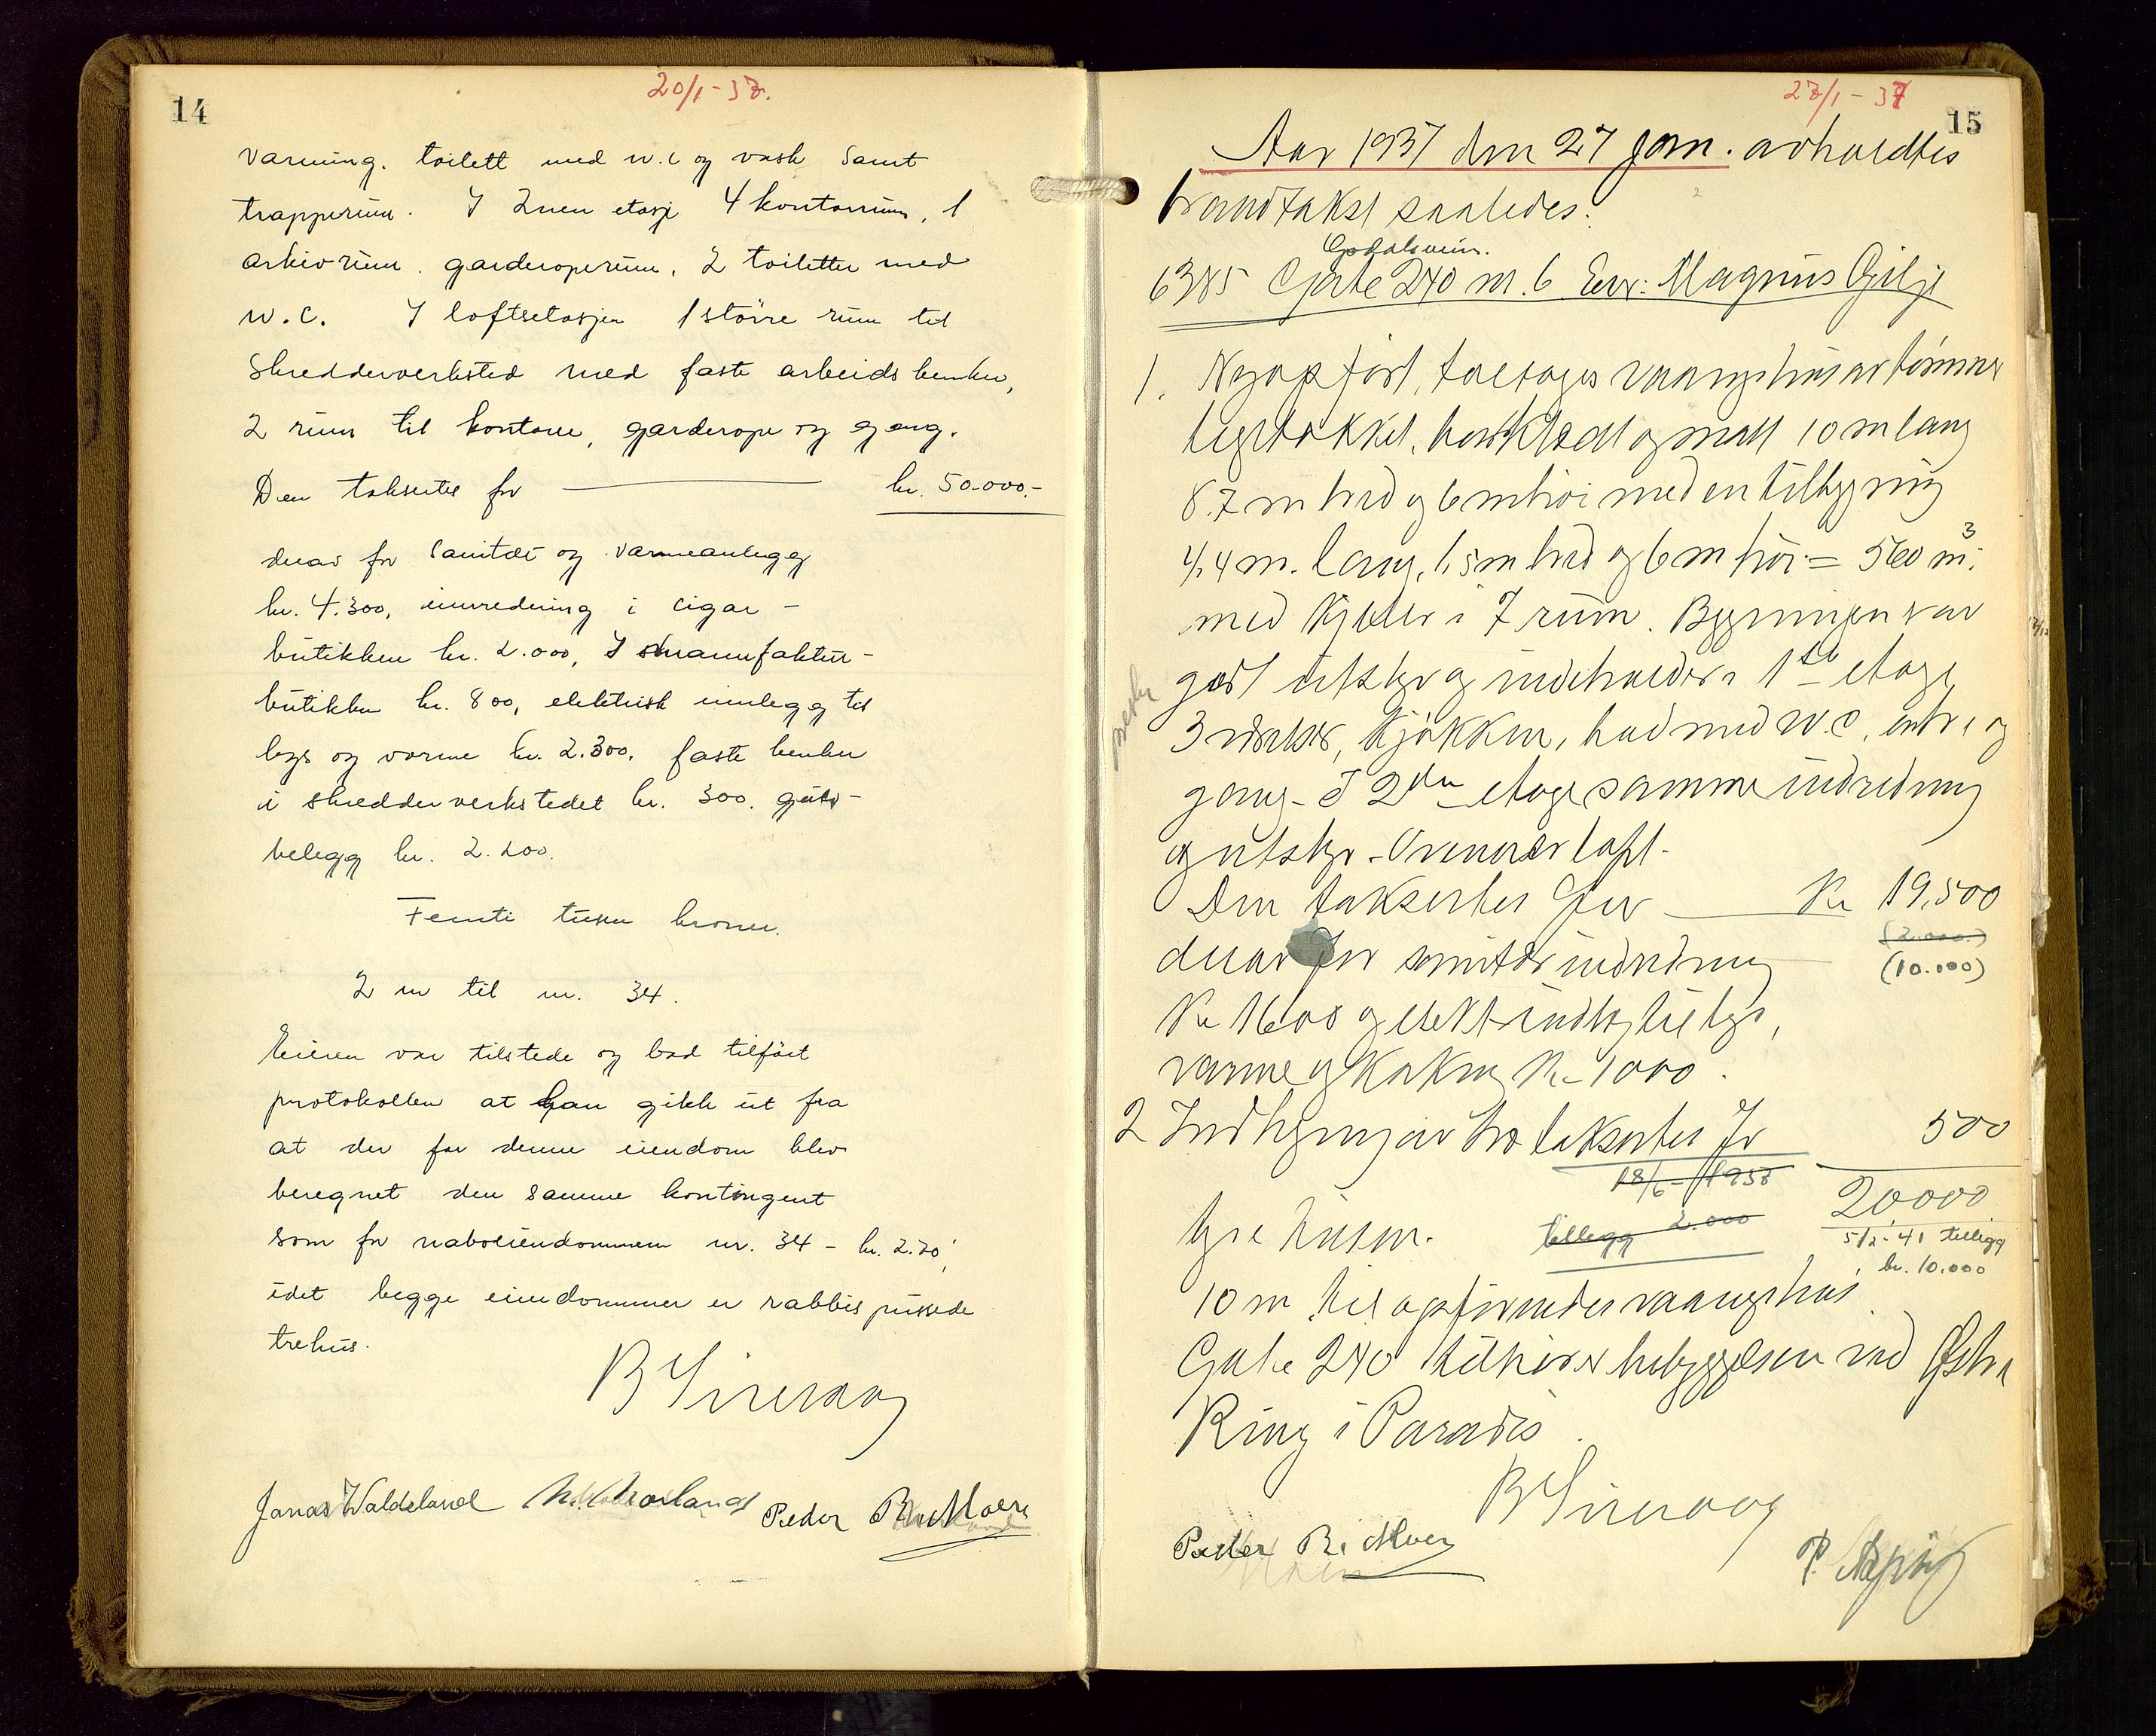 14
20/1-37.
varming. toilett med w.c og vask samt
trapperum. I 2nen etasje 4 kontorrum, 1
arkivrum. garderoperum, 2 toiletter med
w.c. I loftsetasjen 1 større rum til
skredderverksted med faste arbeidsbenker,
2 rum til kontorer, garderope og gang.
Den taksertes for kr. 50.000.-
derav for sanitær og varmeanlegg
kr. 4.300, innredning i cigar-
butikken kr. 2.000, I manufaktur-
butikken kr. 800, elektrisk innlegg til
lys og varme kr. 2.300, faste benker
i skredderverkstedet kr. 300. gulv-
belegg kr. 2.200.
Femti tusen kroner.
2 m til nr. 34.
Eieren var tilstede og bad tilført
protokollen at han gikk ut fra
at der for denne eiendom blev
beregnet den samme kontingent
som for naboeiendommen nr. 34 - kr. 2.20,
idet begge eiendommer er rabbispussede
trehus.
Jonas Waldeland
Peder
15
27/1-37
Aar 1937 den 27 jan. avholdtes
brandtakst saaledes:
6385 Gate 240 nr. 6 Eier: Magnus Gilje
1. Nyopført, toetages vaaningshus av tømmer
teglstækket, bordklædt og maalt 10 m lang
8.7 m bred og 6 m høi med en tilbygning
4,4 m. lang, 1,5 m bred og 6 m høi = 560 m³.
med kjelder i 7 rum. Bygningen har
godt utstyr og indeholder i 1ste etage
3 værelser, kjøkken, bad med w.c, entre og
gang - I 2den etage samme indredning
og utstyr - Ovenover loft.
Den taksertes for Kr 19,500
(2.000.)
derav for sanitær indredning
(10.000)
Kr 1600 og elektr indlæg til lys,
varme og kokning Kr 1000.
2 Indhegning av træ taksertes for 500
18/6 - 1938
20,000
tillegg 2.000
5/2-41 tillegg
kr. 10.000
10 m til opførendes vaaningshus
Gate 240 tilhører bebyggelsen ved Østre
Ring i Paradis.
Peder
P.